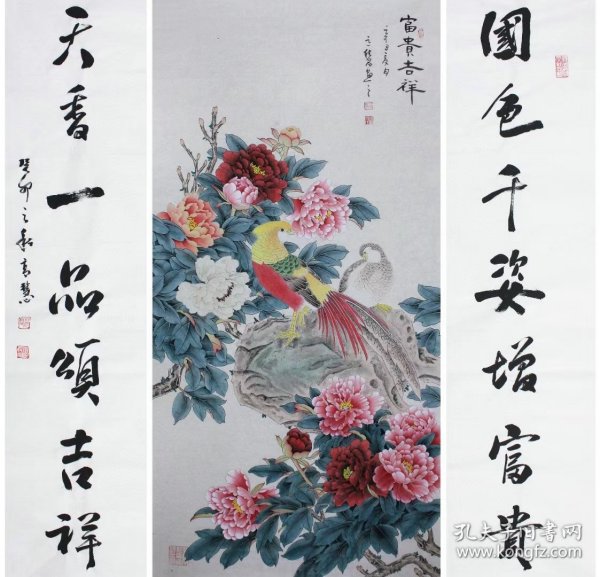 國色千姿增富貴
富貴吉祥
天香一品頌吉祥
癸卯之秋
孔夫子旧书网
www.kongfz.com